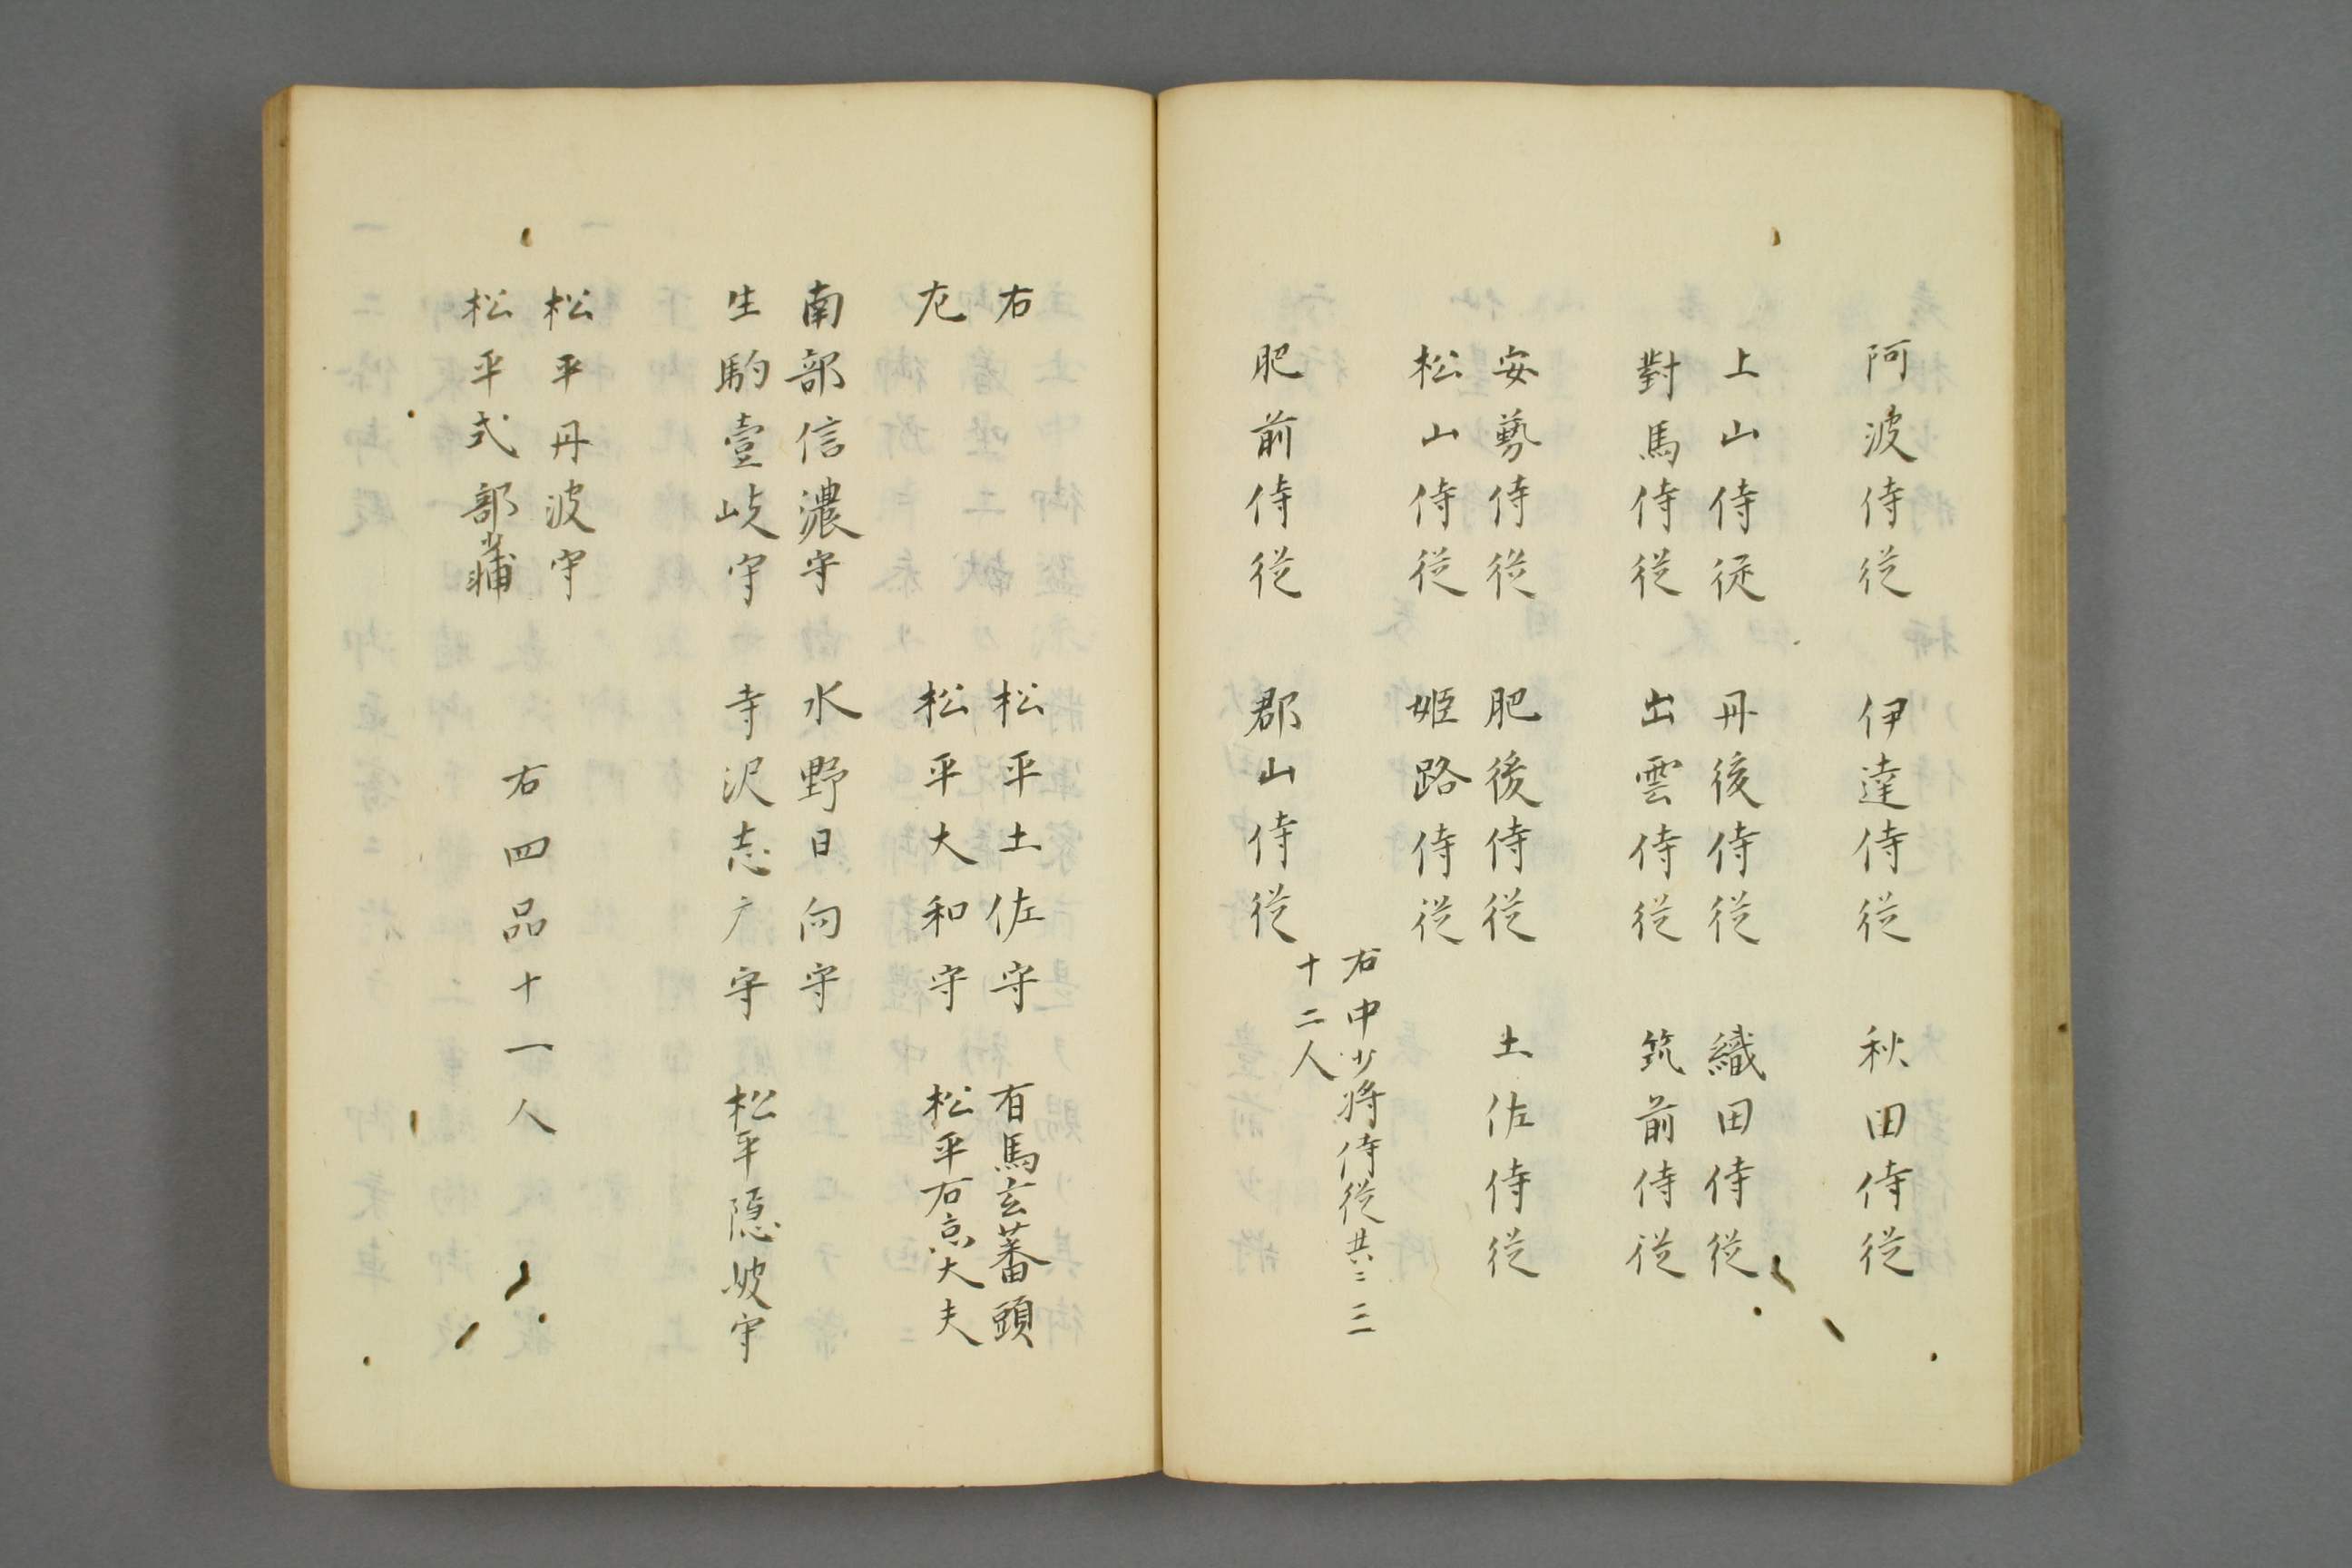 阿波侍従　伊達侍従　秋田侍従
上山侍従　丹後侍従　織田侍従
對馬侍従　出雲侍従　筑前侍従
安藝侍従　肥後侍従　土佐侍従
松山侍従　姫路侍従
肥前侍従　郡山侍従
右中少将侍従共ニ三
十二人
右　松平土佐守　有馬玄蕃頭
左　松平大和守　松平右京大夫
南部信濃守　水野日向守
生駒壹岐守　寺沢志广守　松平隠岐守
松平丹波守
松平式部少輔
右四品十一人